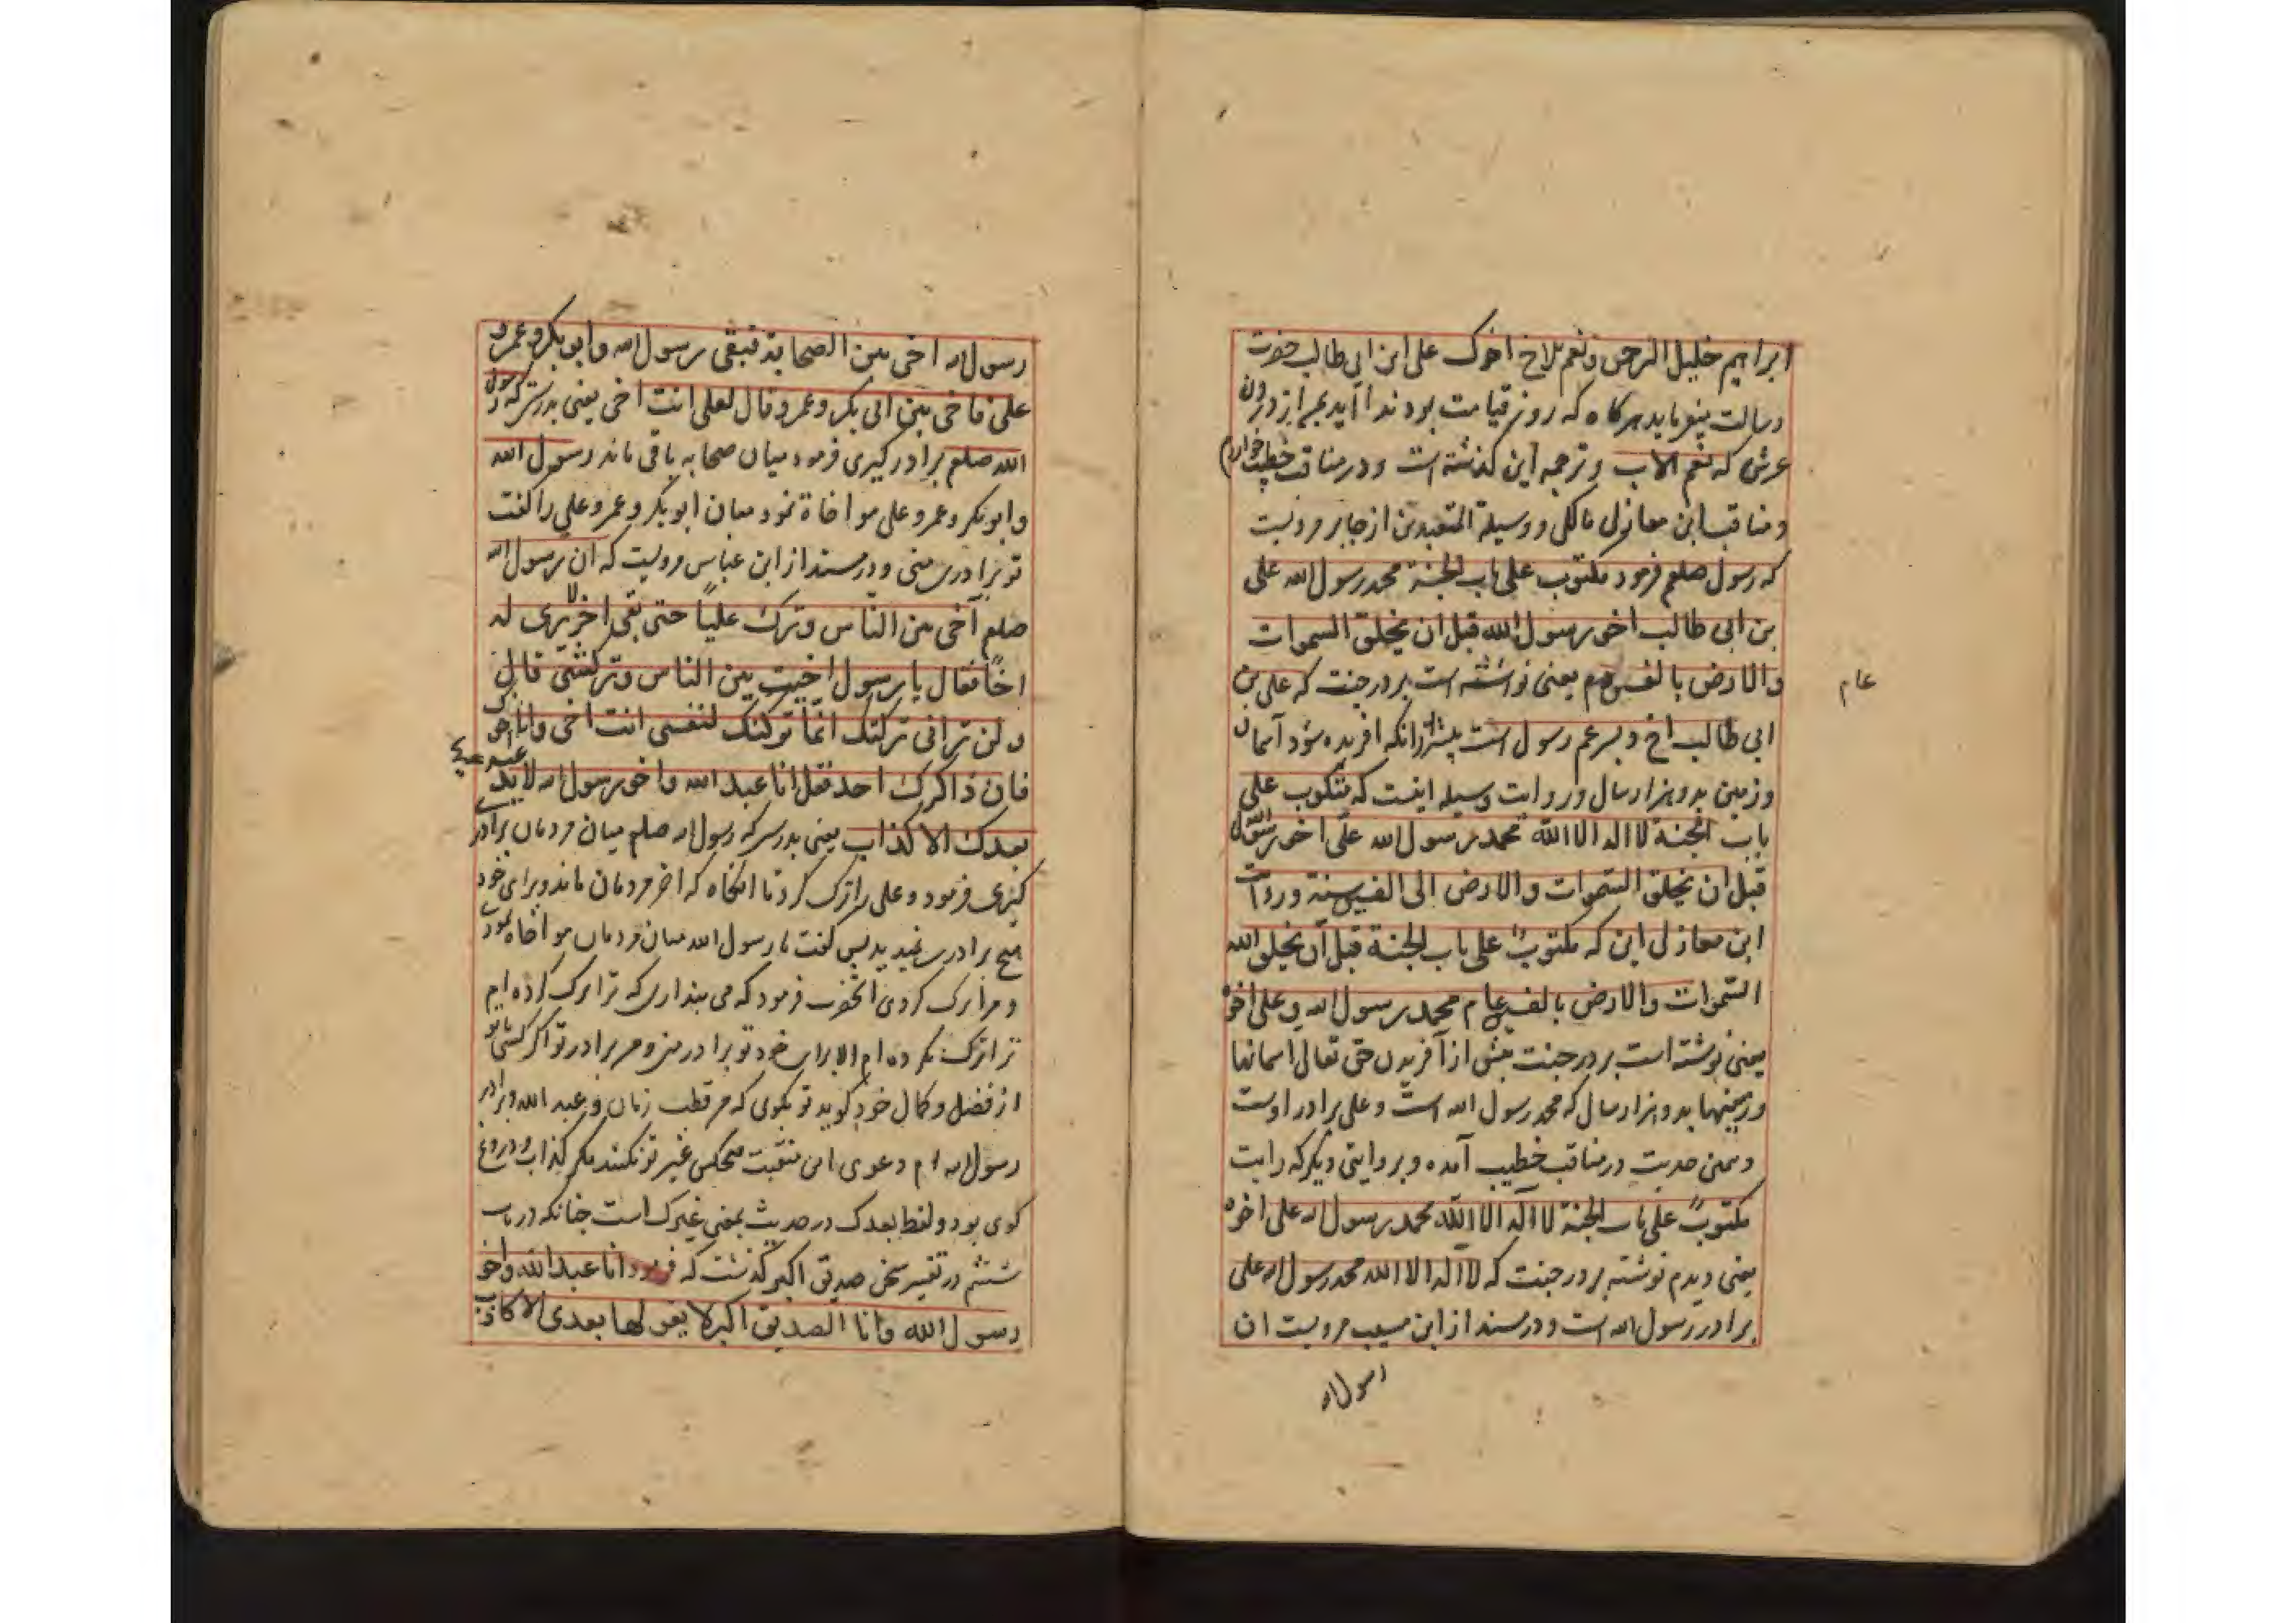 ابراهیم خلیل الرحمن ونعم الاخ اخوک علی ابن ابی طالب حضرت
رسالت میفرماید هرکاه که روز قیامت بود ندا آید بمن از درون
عرش که نعم الاب وترجمه این کذشته است ودر مناقب خطیب خوارزم
ومناقب ابن مغازلی مالکی ووسیلة المتعبدین از جابر مرویست
که رسول صلعم فرمود مکتوب علی باب الجنة محمد رسول الله علی
بن ابی طالب اخو رسول الله قبل ان یخلق السموات
والارض بالفی عام یعنی نوشته است بر در جنت که علی بن
عام
ابی طالب اخ وپسر عم رسول است پیشتر ازانکه افریده شود آسمان
وزمین بدو هزار سال وروایت وسیله اینست که مکتوب علی
باب الجنة لا اله الا الله محمد رسول الله علی اخو رسول الله
قبل ان یخلق السموات والارض الی الفی سنة وروایت
ابن مغازلی این که مکتوب علی باب الجنة قبل ان یخلق الله
السموات والارض بالفی عام محمد رسول الله وعلی اخوه
یعنی نوشته است بر در جنت پیش از آفریدن حق تعالی اسمانها
وزمینها بدو هزار سال که محمد رسول الله است وعلی برادر اوست
وهمین حدیث در مناقب خطیب آمده وبروایتی دیکر که رایت
مکتوب علی باب الجنة لا اله الا الله محمد رسول الله علی اخوه
یعنی دیدم نوشته بر در جنت که لا اله الا الله محمد رسول الله علی
برادر رسول الله است ودر مسند از ابن مسیب مرویست ان
رسول الله
رسول الله اخی بین الصحابة فبقی رسول الله وابو بکر وعمر و
علی فاخی بین ابی بکر وعمر وقال لعلی انت اخی یعنی بدرستی که رسول
الله صلعم برادر کیری فرمود میان صحابه باقی ماند رسول الله
وابو بکر وعمر وعلی مواخاة نمود میان ابو بکر وعمر وعلی را کفت
تو برادر منی ودر مسند از ابن عباس مرویست که ان رسول الله
صلعم آخی بین الناس وترک علیا حتی بقی اخرهم لا یری له
اخا فقال یا رسول اخیت بین الناس وترکتنی قال
ولن ترانی ترکتک انما ترکتک لنفسی انت اخی وانا اخوک
فان ذاکرک احد فقل انا عبد الله واخو رسول الله لا یدعیها
بعدک الا کذاب یعنی بدرستی که رسول الله صلعم میان مردمان برادر
کیری فرمود وعلی را ترک کرد تا انکاه که اخر مردمان ماند وبرای خود
هیچ برادری ندید پس کفت یا رسول الله میان مردمان مواخاه نمودی
ومرا ترک کردی انحضرت فرمود که می پنداری که ترا ترک کرده ام
ترا ترک نکرده ام الا برای خود تو برادر منی ومن برادر تو اکر کسی با تو
از فضل وکمال خود کوید تو بکوی که من قطب زمان وعبد الله وبرادر
رسول الله ام دعوی این منقبت هیچکس غیر تو نکند مکر کذاب ودروغ
کوی بود ولفظ بعدک در حدیث بمعنی غیرک است چنانکه در باب
ششم در تفسیر سخن صدیق اکبر کذشت که فرمود انا عبد الله واخو
رسول الله وانا الصدیق اکبر لا یقولها بعدی الا کاذب